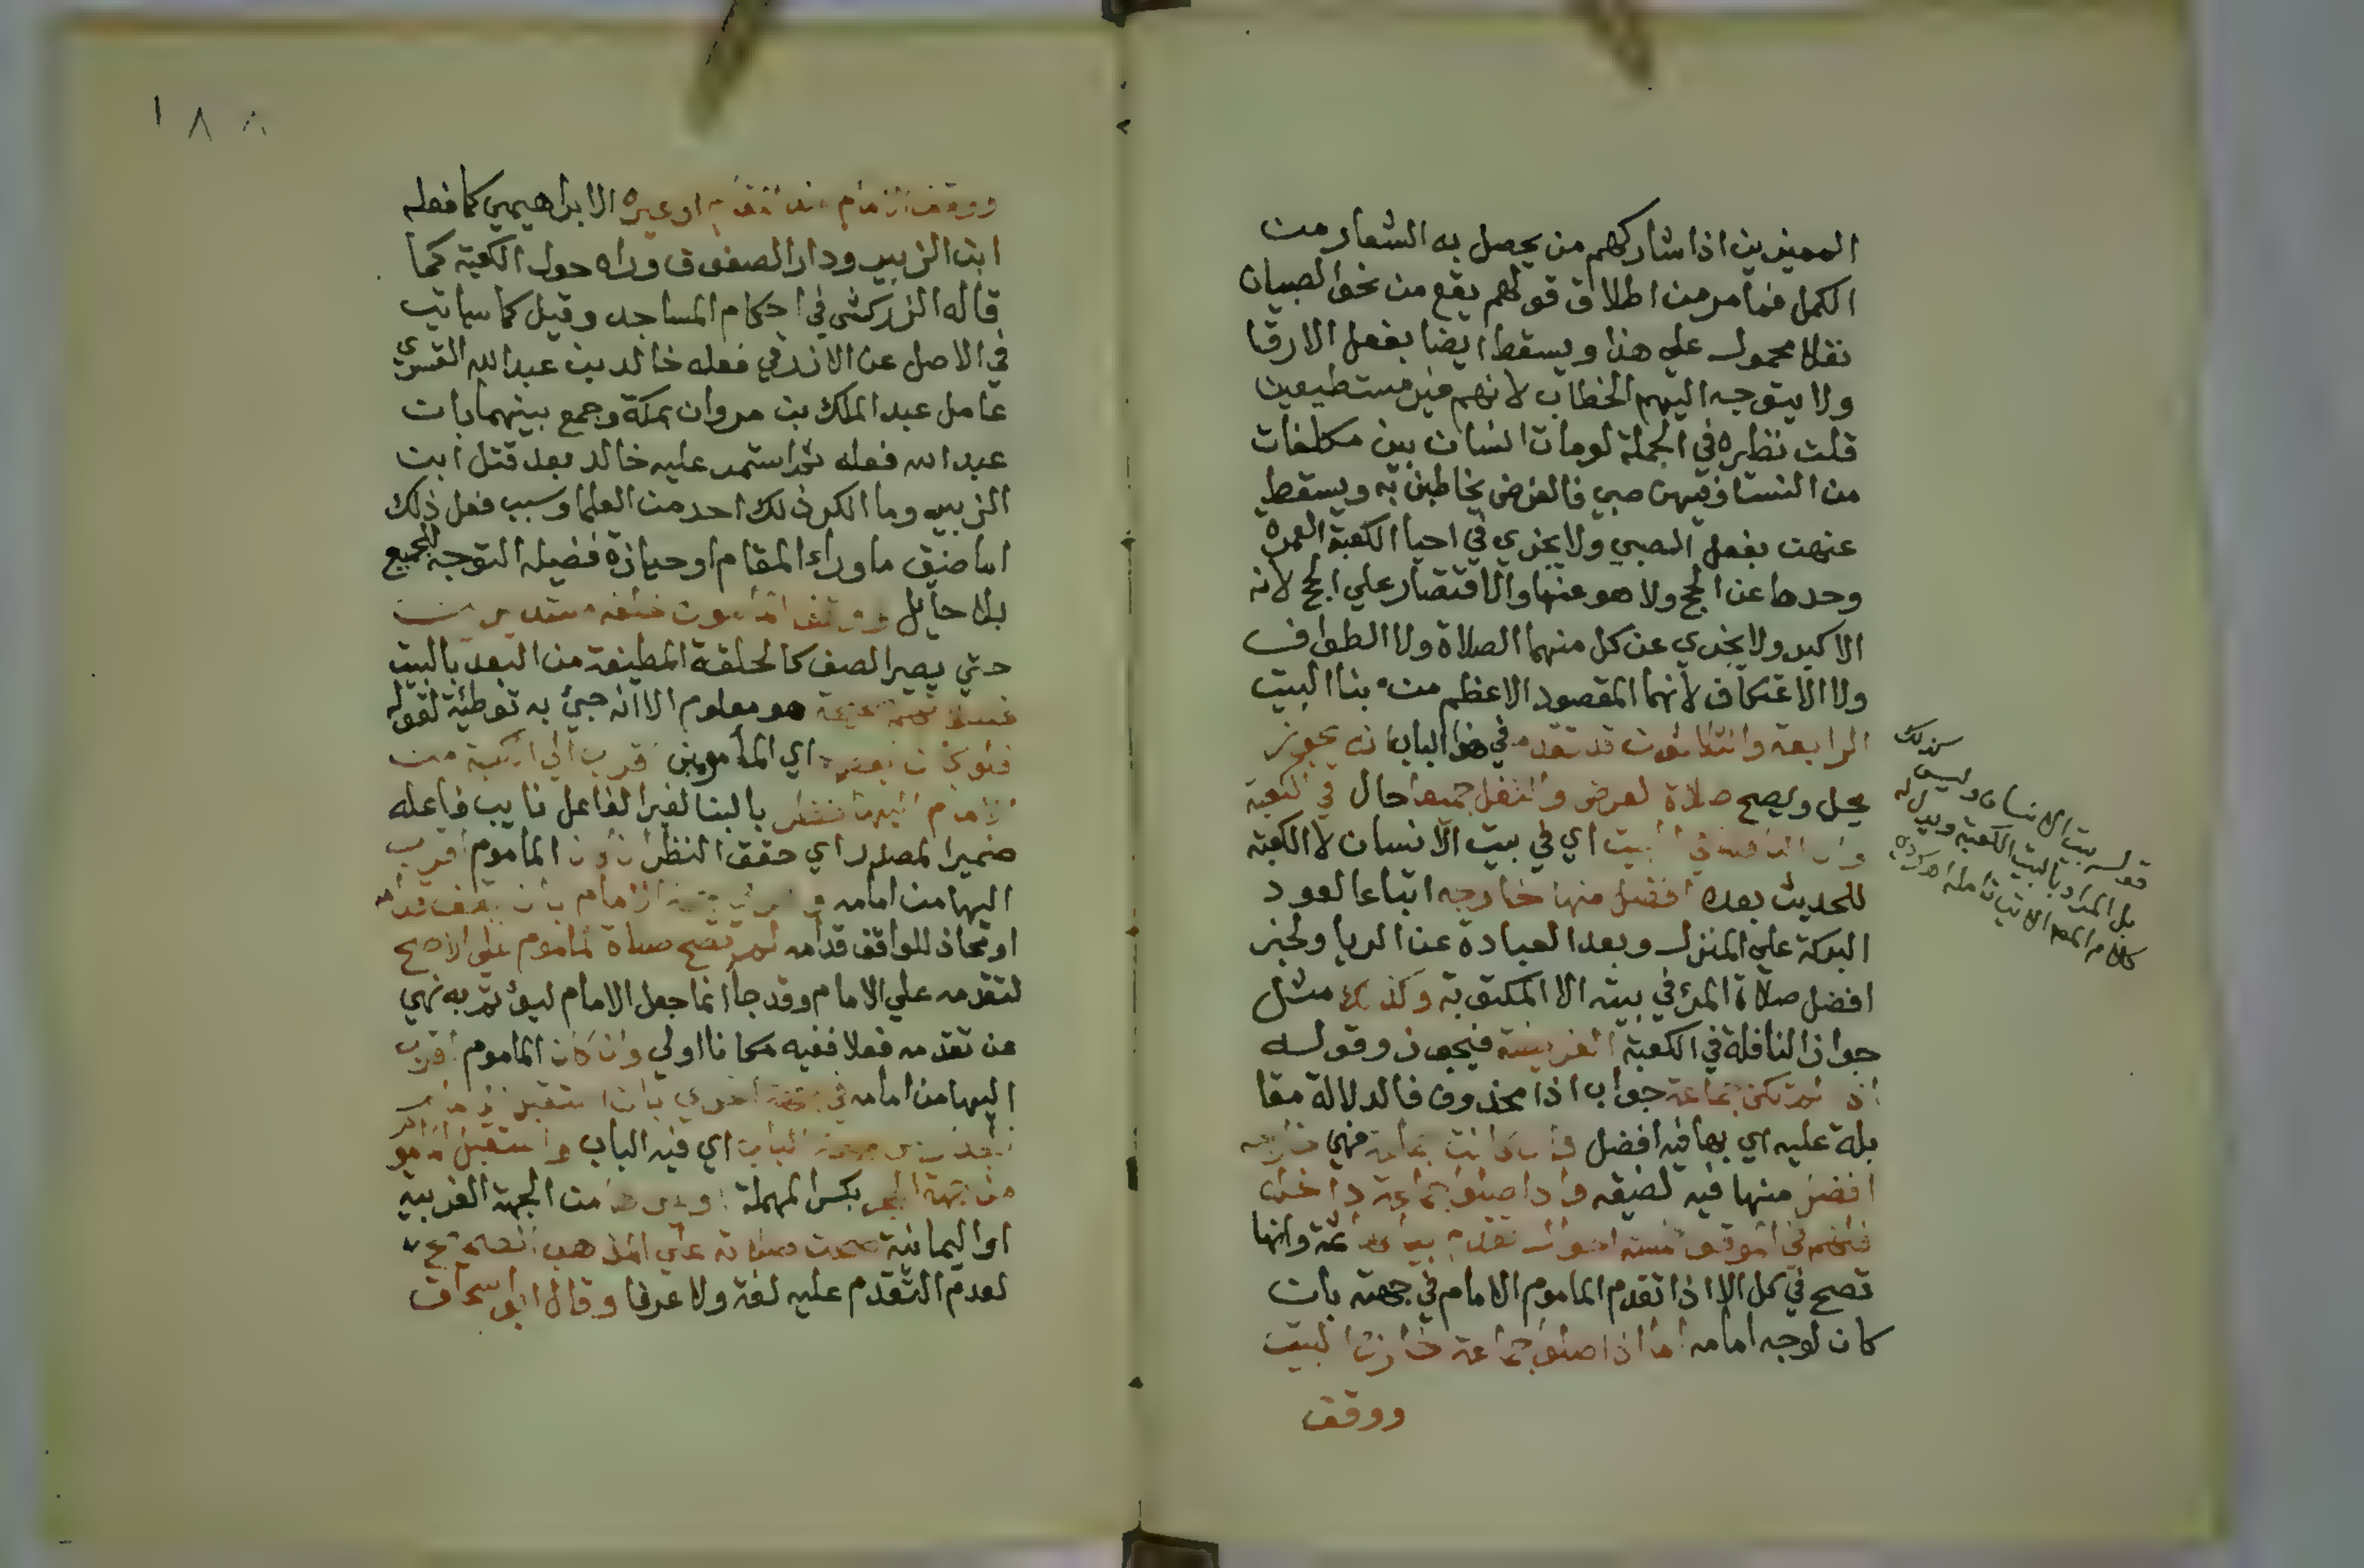 المميزين اذا شاركهم من يحصل به الشعار من
الكمل فما مر من اطلاق قولهم يقع من نحو الصبيان
نفلا محمول علي هذا ويسقط ايضا بفعل الارقا
ولا يتوجه اليهم الخطاب لانهم غير مستطيعين
قلت نظيره في الجملة لو مات انسان بين مكلفات
من النسا وفيهن صبي فالفرض يخاطبن به ويسقط
عنهن بفعل الصبي ولا يجزي في احيا الكعبة العمرة
وحدها عن الحج ولا هو عنها والاقتصار علي الحج لانه
الاكيد ولا يجزي عن كل منهما الصلاة ولا الطواف
ولا الاعتكاف لانهما المقصود الاعظم من بنا البيت
الرابعة والثلاثون قد تقدم في هذا الباب انه يجوز
يحل ويصح صلاة الفرض والنفل جميعا حال في الكعبة
وان النافلة في البيت اي في بيت الانسان لا الكعبة
للحديث بعده افضل منها خارجه اتباعا لعود
البركة علي المنزل وبعد العبادة عن الريا ولخبر
افضل صلاة المرئ في بيته الا المكتوبة وكذلك مثل
جواز النافلة في الكعبة الفريضة فيجوز وقوله
اذا لم تكن جماعة جواب اذا محذوف فالدلالة مقا
بلة عليه اي بها فيه افضل فان كانت جماعة فهي خارجه
افضل منها فيه لضيقه واذا صلوا جماعة داخل
فلهم في الموقف خمسة احوال تقدم بيا وانها
تصح في كل الا اذا تقدم الماموم الامام في جهته بان
كان لوجه امامه اما اذا صلوا جماعة خارج البيت
ووقف
كذلك
قوله بيت الانسان وليس
بل المراد بالبيت الكعبة ويدل له
كلام المص الاتي تامله اه
١٨٨
ووقف الامام خلف المقام او غيره الابراهيمي كما فعله
ابن الزبير ودار الصفوف وراه حول الكعبة كما
قاله الزركشي في احكام المساجد وقيل كما سياتي
في الاصل عن الازرقي فعله خالد بن عبد الله القسري
عامل عبد الملك بن مروان بمكة وجمع بينهما بان
عبد الله فعله ثم استمر عليه خالد بعد قتل ابن
الزبير وما انكر ذلك احد من العلما وسبب فعل ذلك
اما ضيق ما وراء المقام او حيازة فضيلة التوجه للجميع
بلا حايل ووقف المامومون خلفه مستديرين
حتي يصير الصف كالحلقة المطيفة من البعد بالبيت
هو معلوم الا انه جيئ به توطئة لقوله
فلو كان بعضهم اي المأمومين اقرب الي الكعبة من
الامام اليها نظر بالبنا لغير الفاعل نايب فاعله
ضمير المصدر اي حقق النظر ان كان الماموم اقرب
اليها من امامه في جهة الامام بان يقف قدامه
او تحاذ للواقف قدامه لم تصح صلاة الماموم علي الاصح
لتقدمه علي الامام وقد جا انما جعل الامام ليؤتم به نهي
عن تقدمه فعلا ففيه مكانا اولي وان كان الماموم اقرب
اليها من امامه في جهة اخري بان استقبل الامام
الجدار من جهة الباب اي فيه الباب واستقبل المامو
من جهة الحجر بكسر المهملة او غيرها من الجهة الغربية
او اليمانية صحت صلاته علي المذهب الصحيح
لعدم التقدم عليه لغة ولا عرفا وقال ابو اسحاق